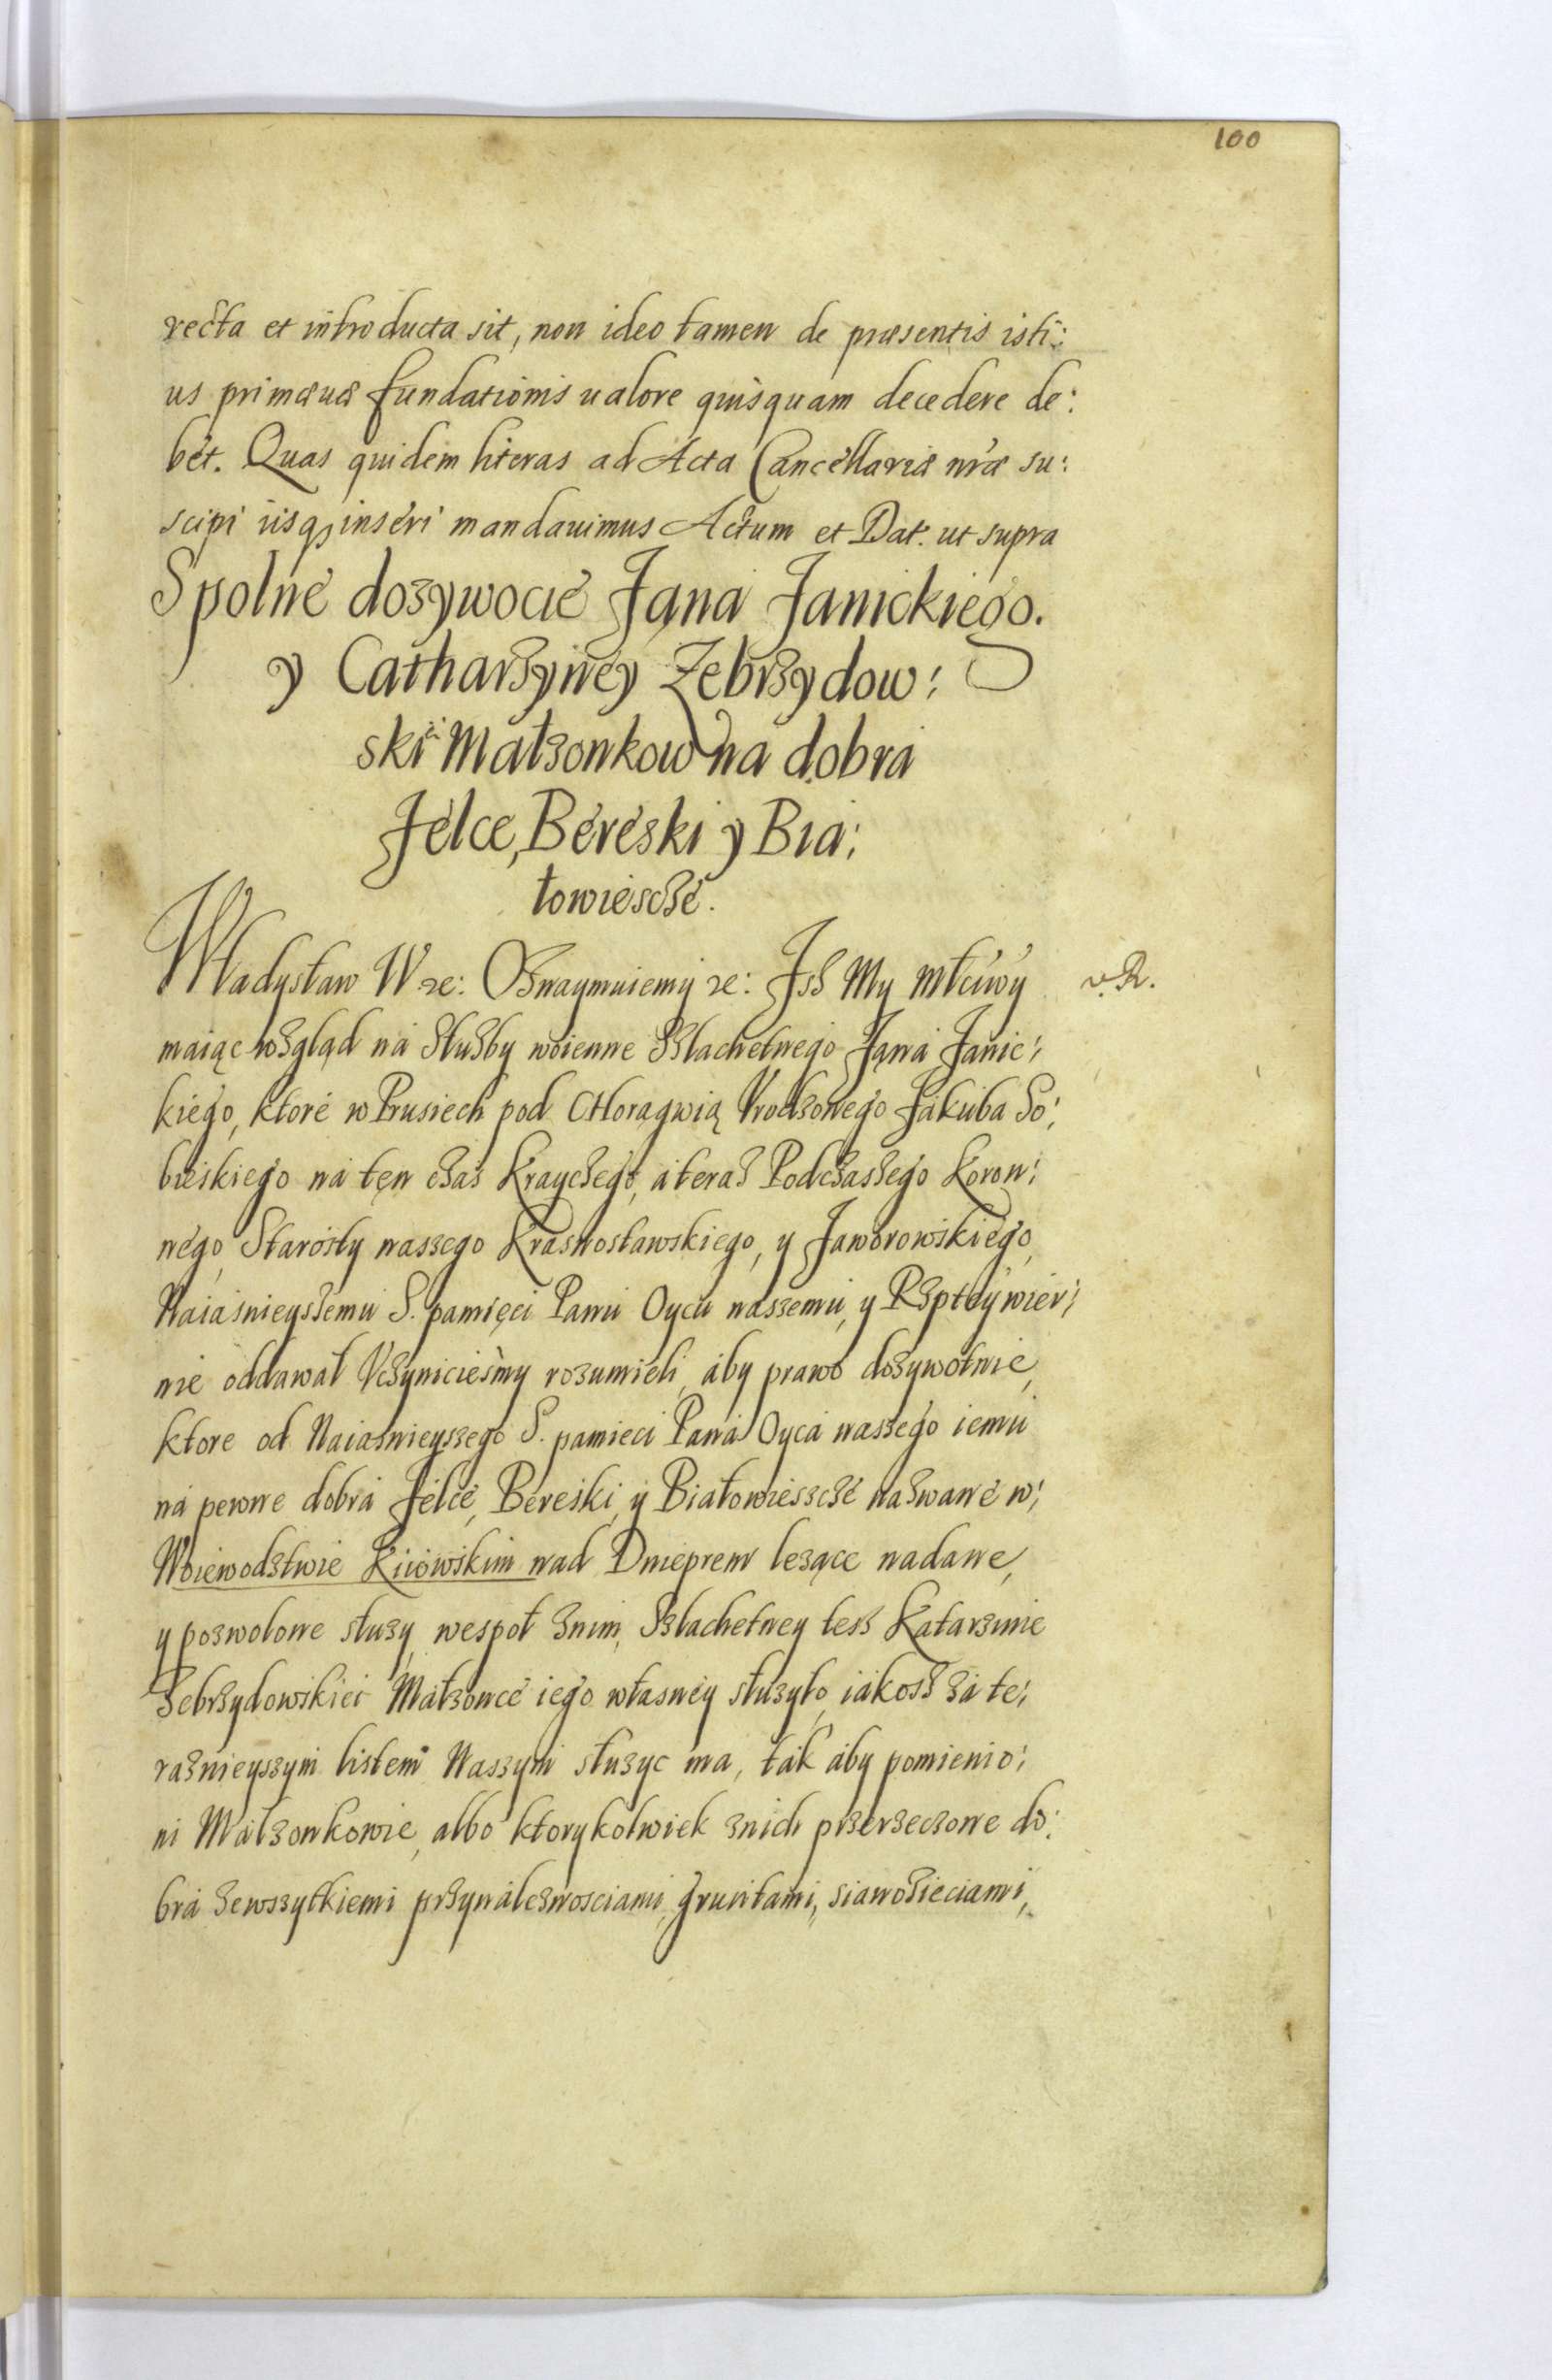 100
recta et introducta sit, non ideo tamen de præsentis isti:
us primæuæ fundationis ualore quisquam decedere de:
bet. Quas quidem literas ad Acta Cancellariæ nræ su:
scipi iisq3 inseri mandauimus Actum et Dat. ut supra
Spolne dozywocie Jana Janickiego.
y Catharzyney Zebrzydow:
skiei Małzonkow na dobra
Jelce, Bereski y Bia:
łowiescze.
Władysław IV etc: Oznaymuiemy etc: Isz My Młciwy
v. R.
maiąc wzgląd na służby woienne Szlachetnego Jana Janic:
kiego, ktore w Prusiech pod Chorągwią Vrodzonego Jakuba So:
bieskiego na ten czas Krayczego, a teraz Podczaszego Koron:
nego, Starosty naszego Krasnostawskiego, y Jaworowskiego,
Naiasnieyszemu S. pamięci Panu Oycu naszemu, y Rzptey wier:
nie oddawał Vczyniciesmy rozumieli, aby prawo dozywotnie,
ktore od Naiasnieyszego S. pamieci Pana Oyca naszego iemu
na pewne dobra Jelce, Bereski, y Białowieszcze nazwane w:
Woiewodztwie Kiiowskim nad Dnieprem lezące nadane,
y pozwolone słuzy, wespoł znim, Szlachetney tesz Katarzinie
Zebrzydowskiei Małzonce iego własney słuzyło, iakosz za te:
raznieyszym listem Naszym słuzyc ma, tak aby pomienio:
ni Małzonkowie, albo ktorykolwiek znich przerzeczone do:
bra zewszytkiemi przynaleznosciami, gruntami, sianozieciami,